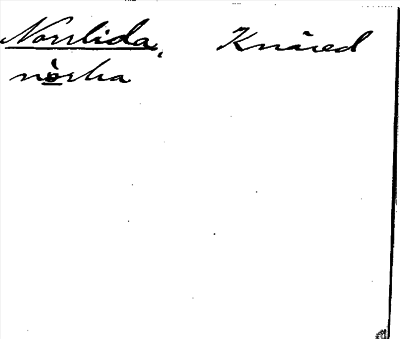 Norrlida, Knäred
nòrlia